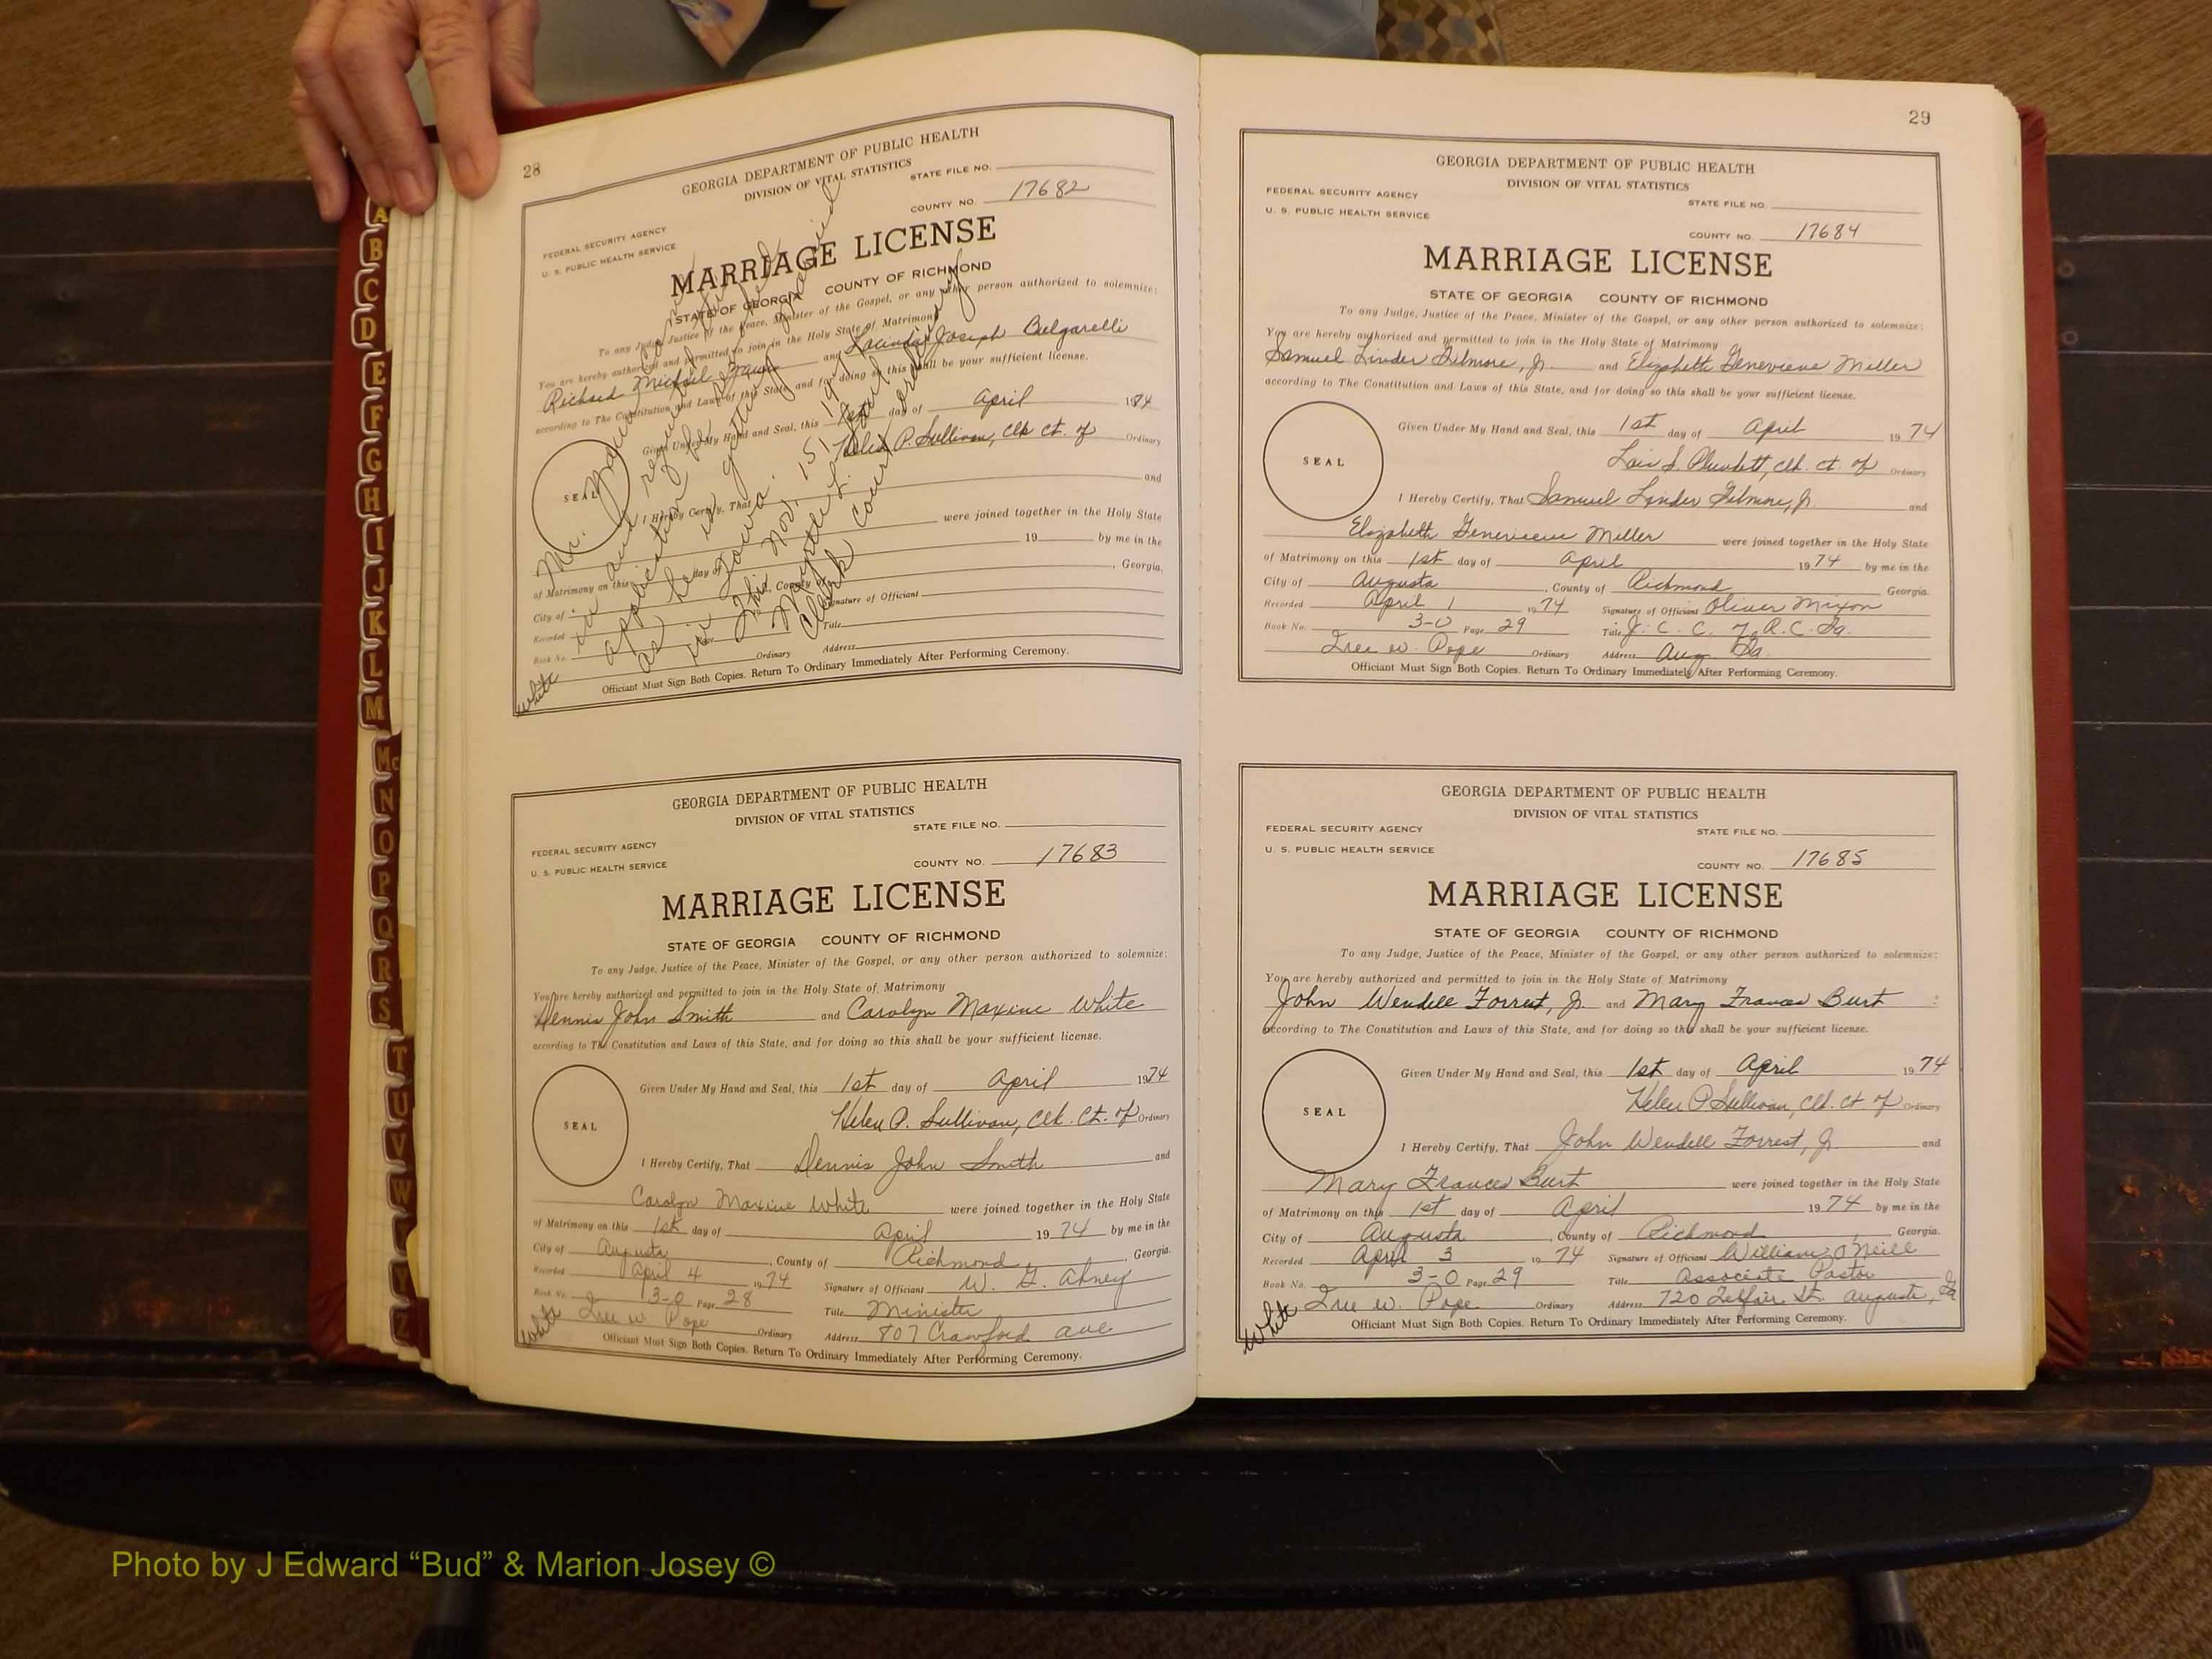 28
GEORGIA DEPARTMENT OF PUBLIC HEALTH
DIVISION OF VITAL STATISTICS
STATE FILE NO.
FEDERAL SECURITY AGENCY
COUNTY NO. 17682
U. S. PUBLIC HEALTH SERVICE
MARRIAGE LICENSE
STATE OF GEORGIA COUNTY OF RICHMOND
To any Judge, Justice of the Peace, Minister of the Gospel, or any other person authorized to solemnize:
You are hereby authorized and permitted to join in the Holy State of Matrimony
Richard Michael and Joseph Bulgarelli
according to The Constitution and Laws of this State, and for doing so this shall be your sufficient license.
Given Under My Hand and Seal, this 1st day of April 1974
Helen P. Sullivan, Clk Ct. of Ordinary
SEAL
I Hereby Certify, That and
were joined together in the Holy State
of Matrimony on this day of 19 by me in the
City of , County of , Georgia.
Recorded Signature of Officiant
Book No. Page Title
Ordinary Address
Officiant Must Sign Both Copies. Return To Ordinary Immediately After Performing Ceremony.
White
Mr.
in and
application be
as he is getting
in Iowa.
This Nov. 15, 19
Clerk Court
GEORGIA DEPARTMENT OF PUBLIC HEALTH
DIVISION OF VITAL STATISTICS
STATE FILE NO.
FEDERAL SECURITY AGENCY
COUNTY NO. 17683
U. S. PUBLIC HEALTH SERVICE
MARRIAGE LICENSE
STATE OF GEORGIA COUNTY OF RICHMOND
To any Judge, Justice of the Peace, Minister of the Gospel, or any other person authorized to solemnize:
You are hereby authorized and permitted to join in the Holy State of Matrimony
Dennis John Smith and Carolyn Maxine White
according to The Constitution and Laws of this State, and for doing so this shall be your sufficient license.
Given Under My Hand and Seal, this 1st day of April 1974
Helen P. Sullivan, Clk. Ct. of Ordinary
SEAL
I Hereby Certify, That Dennis John Smith and
Carolyn Maxine White were joined together in the Holy State
of Matrimony on this 1st day of April 19 74 by me in the
City of Augusta , County of Richmond , Georgia.
Recorded April 4 1974 Signature of Officiant W. G. Abney
Book No. 3-O Page 28 Title Minister
Iree W. Pope Ordinary Address 807 Crawford ave
Officiant Must Sign Both Copies. Return To Ordinary Immediately After Performing Ceremony.
White
29
GEORGIA DEPARTMENT OF PUBLIC HEALTH
DIVISION OF VITAL STATISTICS
FEDERAL SECURITY AGENCY
STATE FILE NO.
U. S. PUBLIC HEALTH SERVICE
COUNTY NO. 17684
MARRIAGE LICENSE
STATE OF GEORGIA COUNTY OF RICHMOND
To any Judge, Justice of the Peace, Minister of the Gospel, or any other person authorized to solemnize:
You are hereby authorized and permitted to join in the Holy State of Matrimony
Samuel Linder Gilmore, Jr. and Elizabeth Genevieve Miller
according to The Constitution and Laws of this State, and for doing so this shall be your sufficient license.
Given Under My Hand and Seal, this 1st day of April 1974
Lois S. Plunkett, Clk. Ct. of Ordinary
SEAL
I Hereby Certify, That Samuel Linder Gilmore, Jr. and
Elizabeth Genevieve Miller were joined together in the Holy State
of Matrimony on this 1st day of April 1974 by me in the
City of Augusta , County of Richmond , Georgia.
Recorded April 1 1974 Signature of Officiant Oliver Mixon
Book No. 3-O Page 29 Title J. C. C. of R. C. Ga.
Iree W. Pope Ordinary Address Aug Ga.
Officiant Must Sign Both Copies. Return To Ordinary Immediately After Performing Ceremony.
GEORGIA DEPARTMENT OF PUBLIC HEALTH
DIVISION OF VITAL STATISTICS
FEDERAL SECURITY AGENCY
STATE FILE NO.
U. S. PUBLIC HEALTH SERVICE
COUNTY NO. 17685
MARRIAGE LICENSE
STATE OF GEORGIA COUNTY OF RICHMOND
To any Judge, Justice of the Peace, Minister of the Gospel, or any other person authorized to solemnize:
You are hereby authorized and permitted to join in the Holy State of Matrimony
John Wendell Forrest, Jr. and Mary Frances Burt
according to The Constitution and Laws of this State, and for doing so this shall be your sufficient license.
Given Under My Hand and Seal, this 1st day of April 1974
Helen P Sullivan, Clk. Ct of Ordinary
SEAL
I Hereby Certify, That John Wendell Forrest, Jr. and
Mary Frances Burt were joined together in the Holy State
of Matrimony on this 1st day of April 1974 by me in the
City of Augusta , County of Richmond , Georgia.
Recorded April 3 1974 Signature of Officiant William O'Neill
Book No. 3-O Page 29 Title Associate Pastor
Iree W. Pope Ordinary Address 720 Telfair St. Augusta, Ga
Officiant Must Sign Both Copies. Return To Ordinary Immediately After Performing Ceremony.
White
A
B
C
D
E
F
G
H
I
J
K
L
M
Mc
N
O
P
Q
R
S
T
U
V
W
Y
Z
Photo by J Edward “Bud” & Marion Josey ©